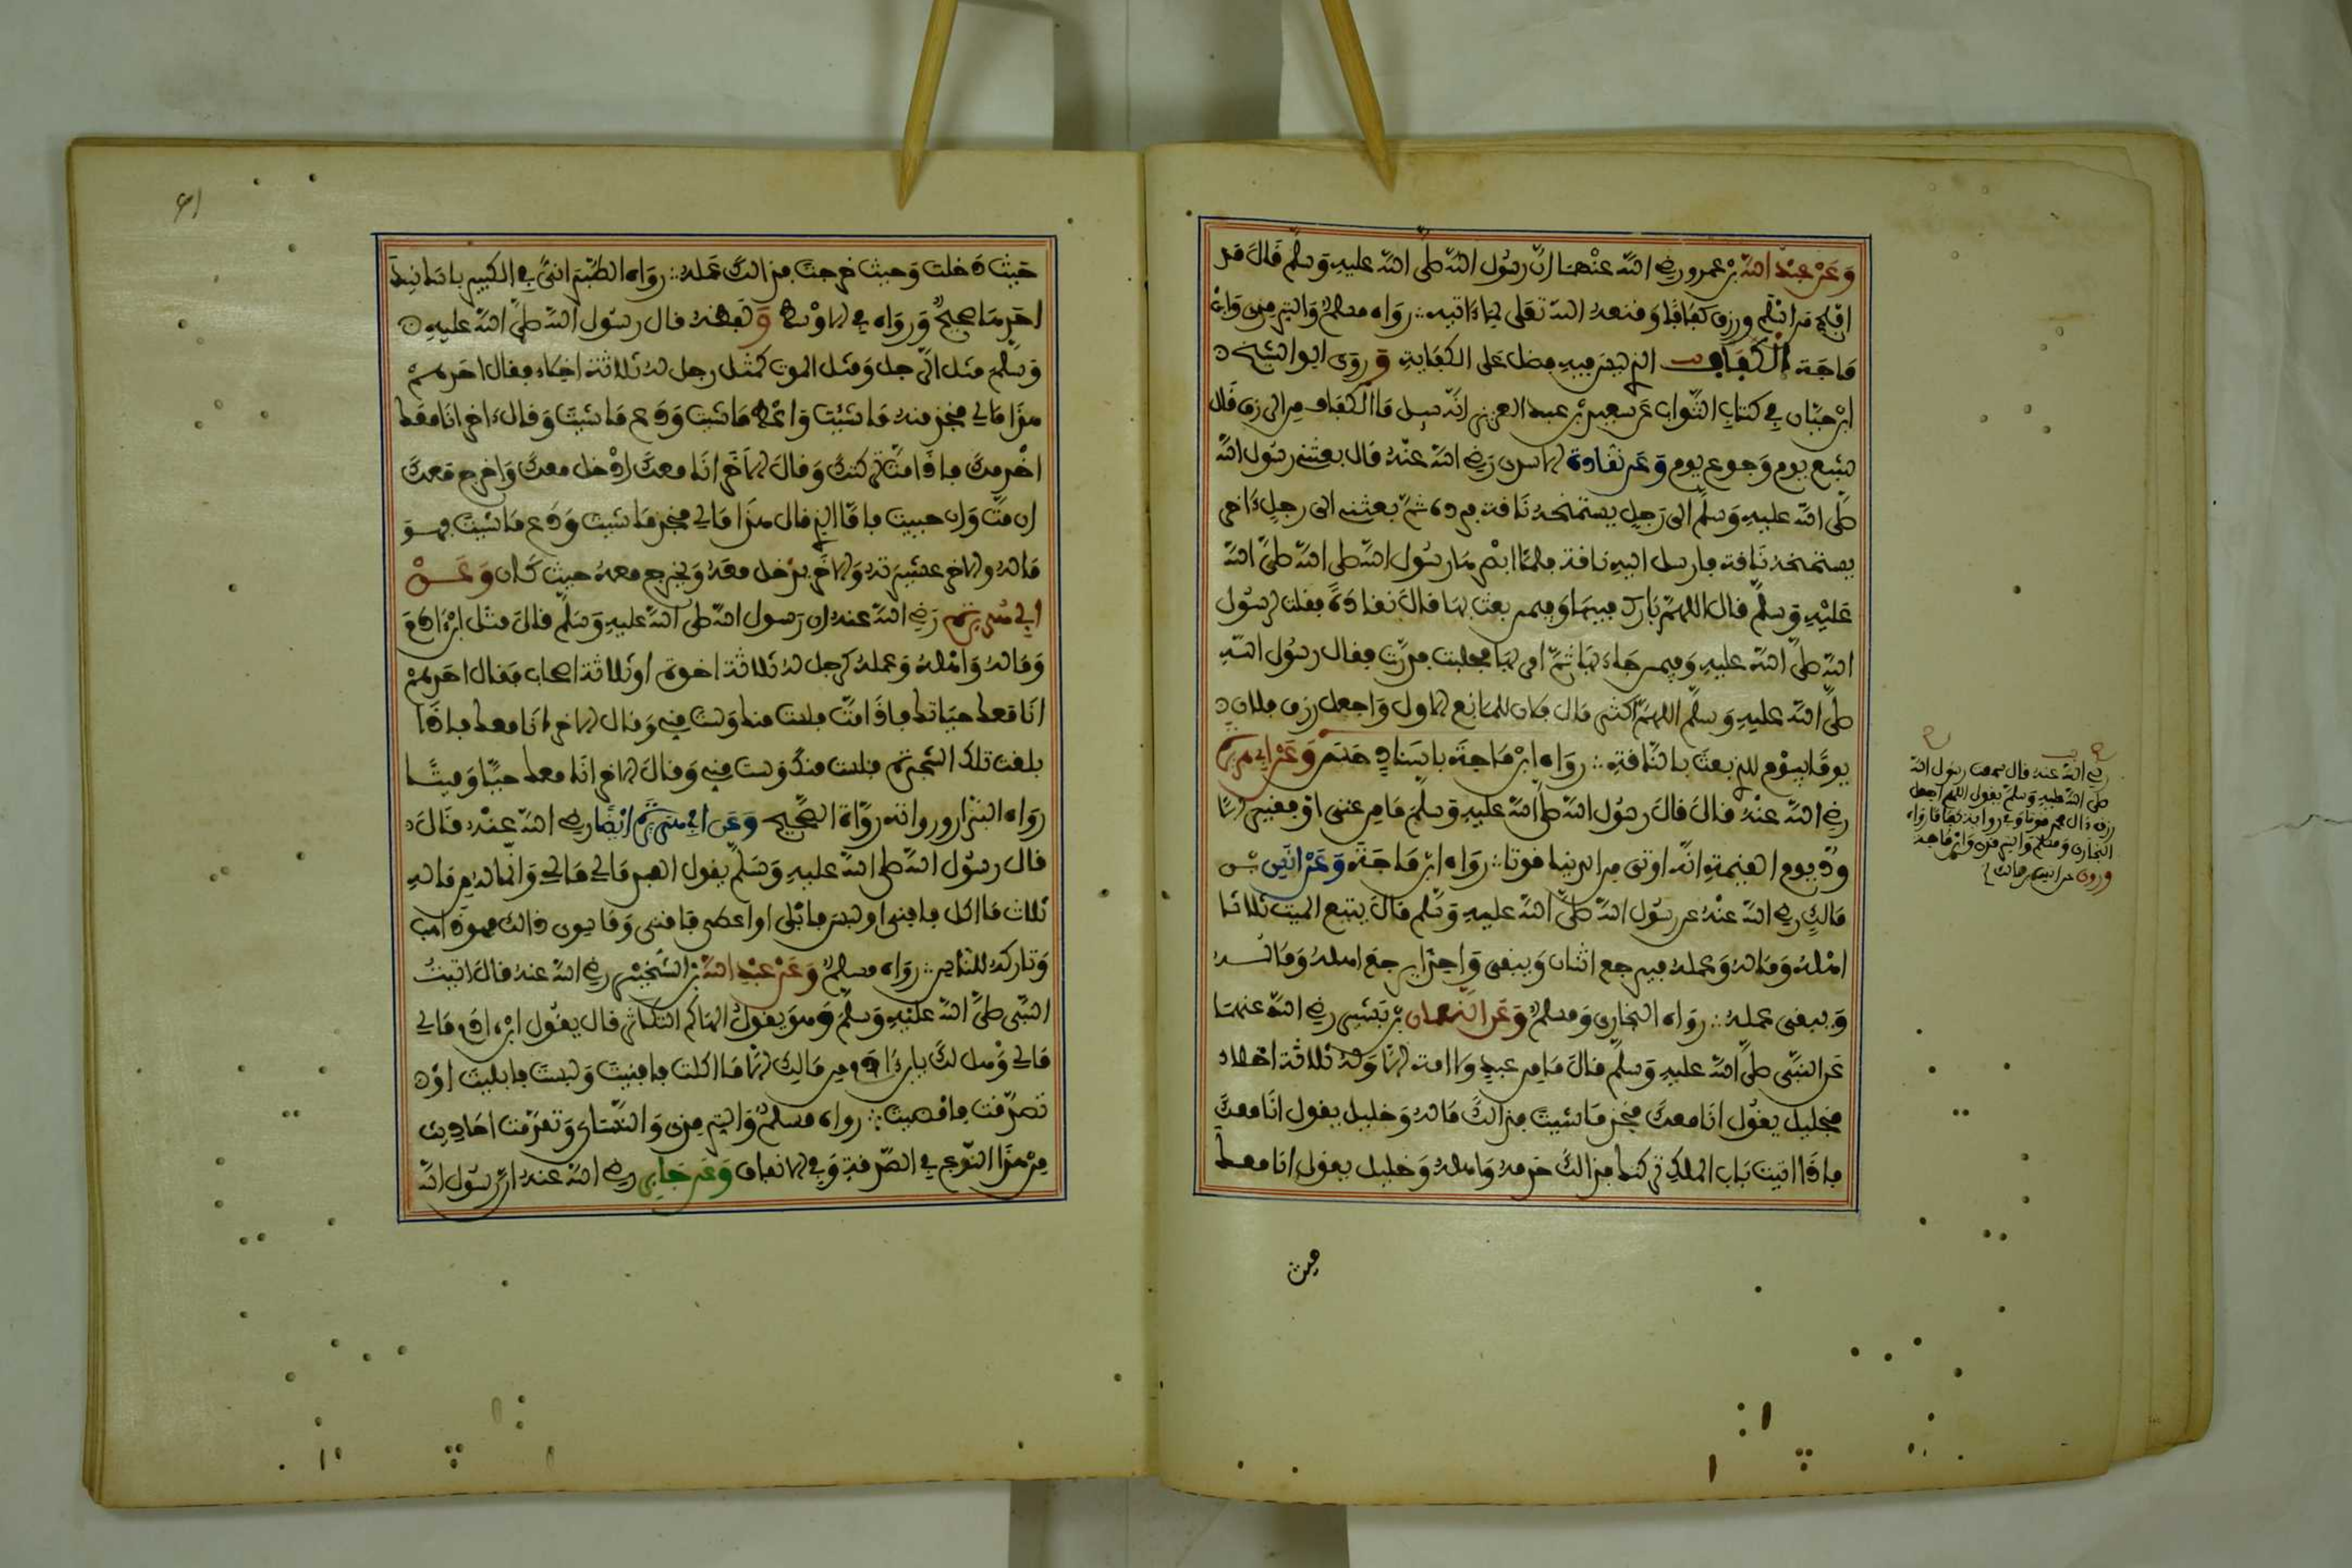 وَعَنْ عَبْدِ اللهِ بْنِ عمرو رضي اللهُ عنْهما انّ رسُول اللهِ صلى الله عليهِ وَسلم قَالَ قد
افلح من اسْلم ورزق كفَافا وَقنعه الله تعَلى بما ءاتيه ∴ رَواه مسلم وَالترمذى وَابْن
مَاجَة الكَفَاف الذى ليسَ فيهِ فضل عَلى الكفَايةِ وَروى ابو الشيخ
ابْن حبّان في كتابِ الثّواب عَن سعيد بْن عبد العزيز انّه سيل مَا الكفاف من الرزق قَال
شبع يوم وَجوع يوم وَعَن نقَادة الاسدى رَضي الله عنْهُ قال بعثنى رسُول الله
صلى الله عليهِ وَسلم الى رَجلٍ يستمنحه نَاقة فرده ثمّ بعثنى الى رجلٍ ءَاخر
يستمنحه نَاقة فارسل اليهِ ناقة فلمّا ابصَرها رسُول الله صلى الله صلى الله
عَليْهِ وَسلم قال اللهمّ بَارك فيهَا وَفيمن بعث بهَا قَالَ نقادَةُ فقلت لرسُول
الله صلى الله عليهِ وَفيمن جَاءَ بهَا ثمّ امر بهَا فحلبت فدرّت فقال رسُول اللهِ
صلى الله عليهِ وَسلم اللهمّ اكثر مَال فلان للمَانع الاول وَاجعل رزق فلان
يومًا بيوْم للذى بعث بالنّاقةِ ∴ رَوَاه ابْن مَاجَة باسنادٍ حَسَن وَعَنْ ابى هريرة
رضي الله عَنْهُ قالَ قالَ رسُول الله صلى الله عليْهِ وَسلم مَا من غنى اوْ فقير الا
ودّ يوم القيمة انّه اوتى من الدنيا قوتا ∴ رَواه ابْن مَاجَة وَعَنْ انَس بْن
مَالِكٍ رضي الله عنْهُ عن رسُول الله صلى الله عليهِ وَسلم قَالَ يتبع الميت ثلاثا
اهْلهُ وَمَاله وَعمله فيرجع اثنان وَيبقى وَاحد يرجع اهله وَمَالُه
وَيبقى عمله ∴ رَواه البخارى وَمسلم وَعَن النّعمان بْن بَشير رضي الله عنهما
عَن النّبى صلى الله عليهِ وَسلم قالَ مَا من عبدٍ وَلا امة الا وَله ثلاثة اخلاء
فخليل يقُول انَا معكَ فخذ مَا شيت فذالكَ مَاله وَخليل يقول انَا معكَ
فاذَا اتيت بَاب الملكِ تركتك فذالكَ خدمه وَاهله وَخليل يقول انا معك
حيث
رضي الله عنه قال سمعت رسُول الله
صلى الله عليهِ وَسلم يقول اللهم اجعل
رزق ءال محمد قوتا وَفي رواية كفافا رَواه
البخارى وَمسلم وَالترمذى وَابْن مَاجه
وروى عن انس بن مالك
61
حَيث دَخلت وَحيث خرجت فذالكَ عَمله ∴ رَواه الطّبَرانىّ في الكبير باسَانيد
احَدهَا صحيح وَرَواه في الاوْسط وَلفظه قال رسُول الله صلى الله عليهِ
وَسلم مثل الرّجل وَمثل الموت كمثل رجل له ثلاثة اخلاء فقال احَدهم
هذَا مَالى فخذ منه مَا شئت وَاعْط مَا شيت وَدَع مَا شيتَ وَقال ءَاخر انَا معَك
اخْدمكَ فاذَا متَّ تركتكَ وَقالَ الاخَر انَا معكَ ادْخل معكَ وَاخرج معكَ
ان متَّ وَان حييت فامّا الذى قال هذَا مَالى فخذ مَا شيت وَدَع مَا شيت فهو
مَاله والاخر عشيرته وَالاخَر يدْخل معَهُ وَيخرج معهُ حيث كَان وَعَنْ
ابى هُريرة رَضي الله عنه ان رسول الله صلى الله عليهِ وَسَلم قالَ مثل ابْن ءادَم
وَمَاله وَاهْله وَعمله كرجل له ثلاثة اخوة او ثلاثة اصحاب فقال احَدهم
انَا معك حيَاتك فاذَا متَّ فلست منك وَلست منى وَقال الاخر انَا معك فاذَا
بلغت تلك الشجرة فلست منكَ وَلست منى وَقالَ الاخر انَا معك حيّا وَميتًا
رَواه البزار ورواته رُوَاة الصّحيح وَعَن ابى هُريرة ايْضًا رضي الله عنْه قَالَ
قال رسُول الله صلى الله عليهِ وَسَلم يقول العبد مَالى مَالى وَانّما له من مَالهِ
ثلاث مَا اكل فافنى او لبسَ فابْلى او اعطى فاقنى وَمَا سوى ذالك فهو ذاهب
وَتاركه للنّاس ∴ رَواه مسلم وَعَنْ عَبْدِ اللهِ بْن الشّخيْر رضي الله عنه قالَ اتيتُ
النّبى صلى الله عليْهِ وَسلم وَهوَ يقول الهَاكم التكاثر قال يقُول ابْن ءادَم مَالى
مَالى وَهل لكَ يا بن ءادَم من مَالِك الا مَا اكلت فافنيت وَلبست فابليت اوْ
تصدّقت فامْضيت ∴ رواه مسلم وَالترمذى وَالنّسَاى وَتقدّمت احَاديث
منْ هذَا النّوع في الصّدقةِ وَفي الانفاق وَعَن جَابر رضي الله عنه ان رسُول الله